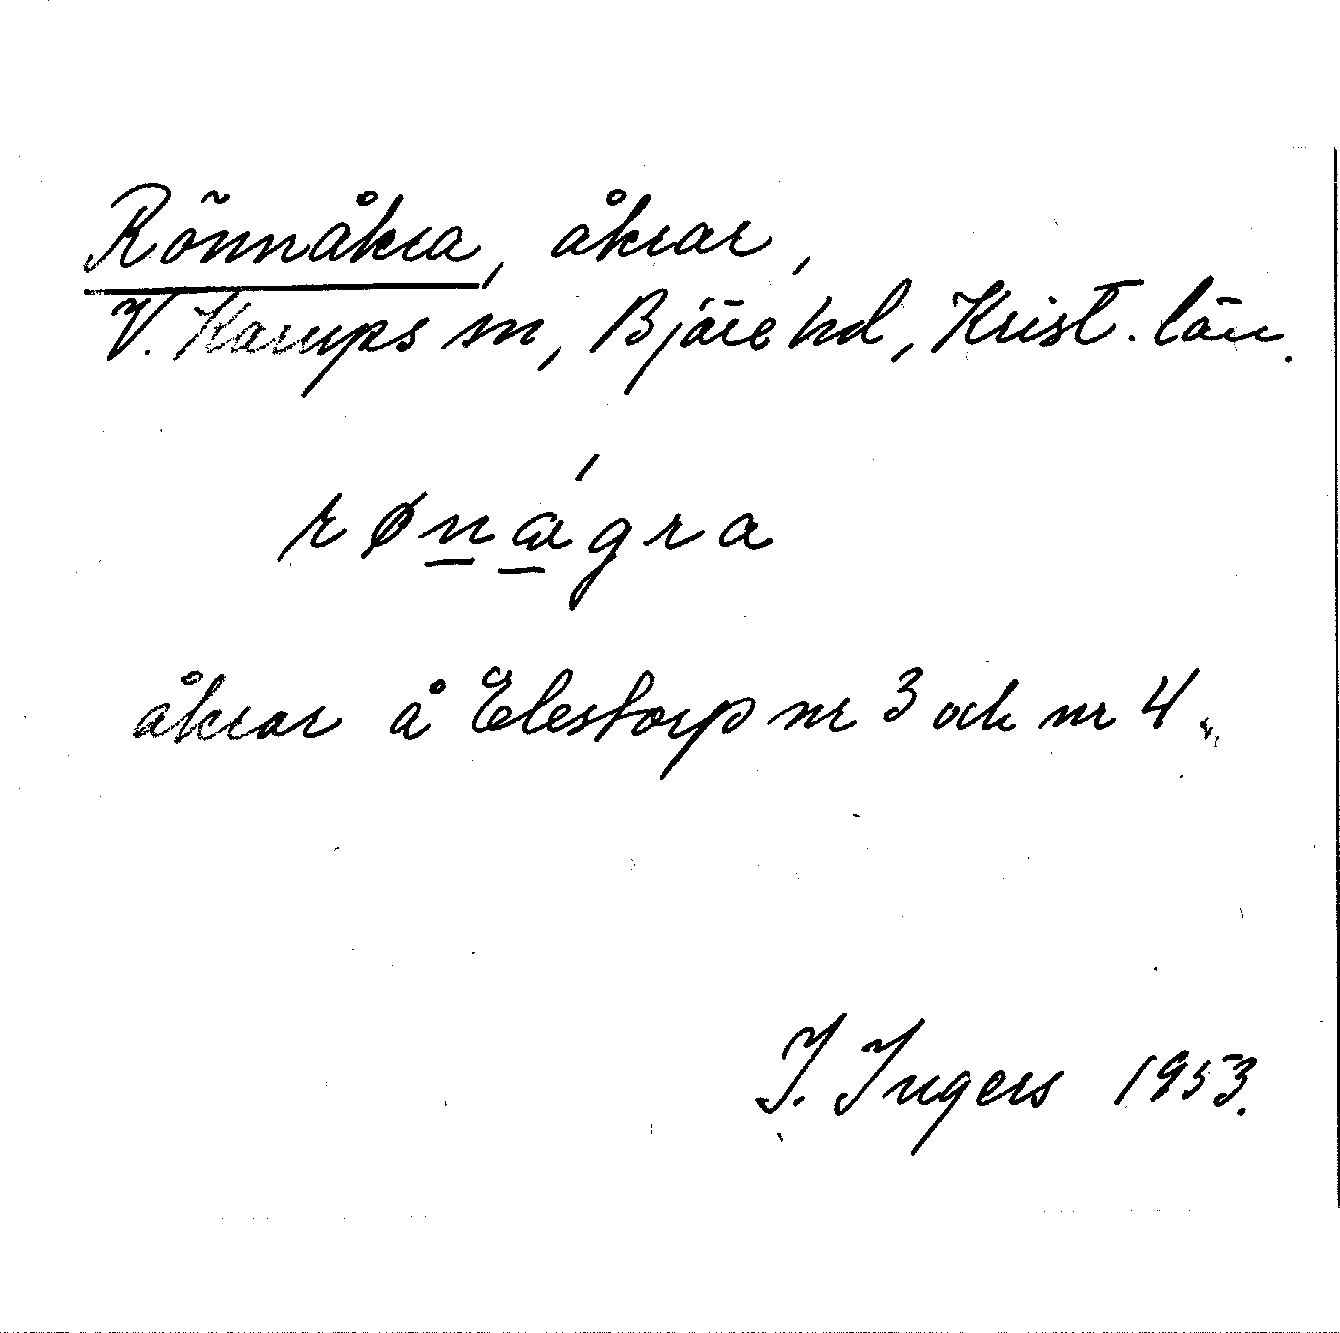 Rönnåkra, åkrar,
V. Karups sn, Bjäre hd, Krist. län.
røna̱´gra
åkrar å Elestorp nr 3 och nr 4.
I. Ingers 1953.